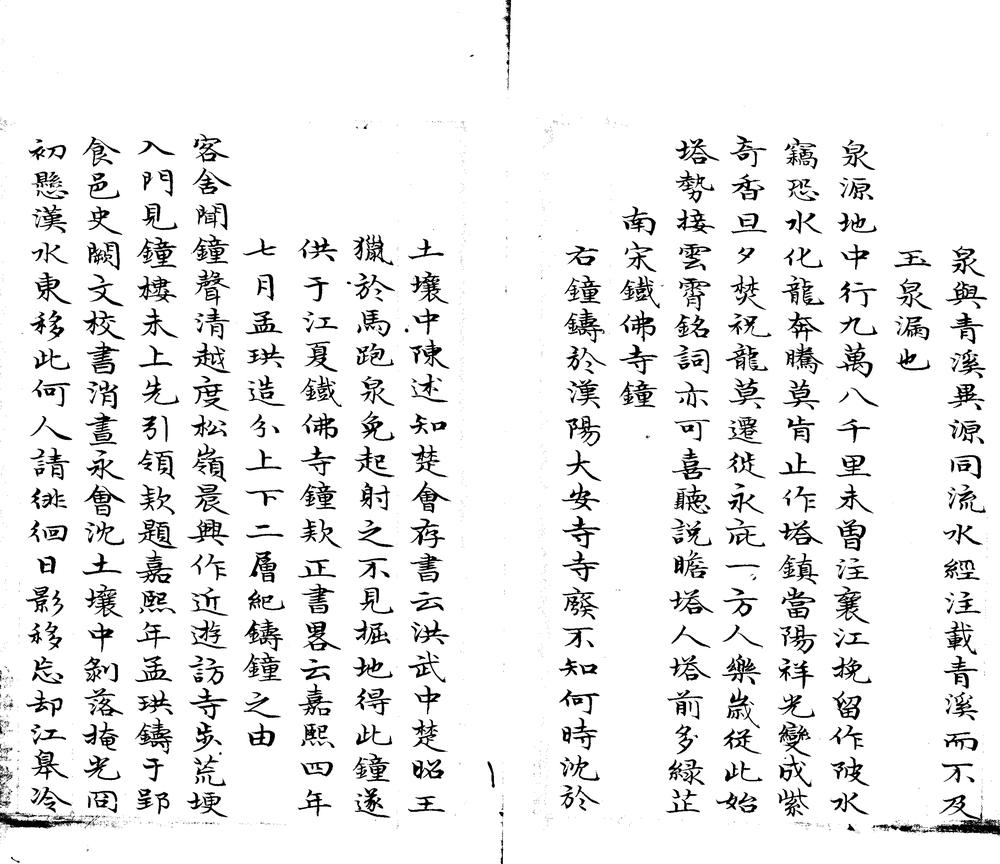 泉與青溪異源同流水經注載青溪而不及
玉泉漏也
泉源地中行九萬八千里未曾注襄江挽留作陂水
竊恐水化龍奔騰莫肯止作塔鎮當陽祥光變成紫
奇香旦夕焚祝龍莫遷徙永庇一方人樂歲從此始
塔勢接雲霄銘詞亦可喜聽説瞻塔人塔前多綠芷
南宋鐵佛寺鐘
右鐘鑄於漢陽大安寺寺廢不知何時沈於
土壤中陳述知楚會存書云洪武中楚昭王
獵於馬跑泉兔起射之不見掘地得此鐘遂
供于江夏鐵佛寺鐘欵正書畧云嘉熙四年
七月孟珙造分上下二層紀鑄鐘之由
客舍聞鐘聲清越度松嶺晨興作近遊訪寺步荒埂
入門見鐘樓未上先引領欵題嘉熙年孟珙鑄于郢
食邑史闕文校書消晝永會沈土壤中剝落掩光冏
初懸漢水東移此何人請徘徊日影移忘却江皋冷